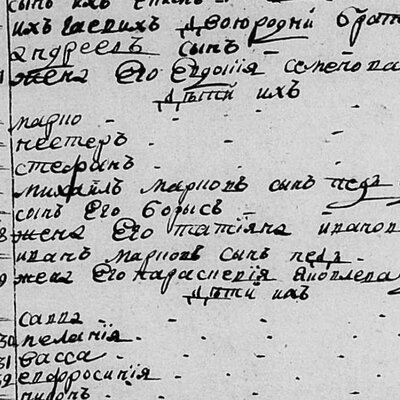 сынъ ихъ
ихъ двоюродни братъ
андреевъ сынъ
жена его Евдокія семенова
дѣтй ихъ
марко
нестеръ
стефанъ
михаилъ марковъ сынъ
сынъ его борысъ
8 жена его татіяна иванов
иванъ марковъ сынъ
9 жена его параскевія яковлева
дѣтй ихъ
савва
30 пелагія
31 васса
32 евфросинія